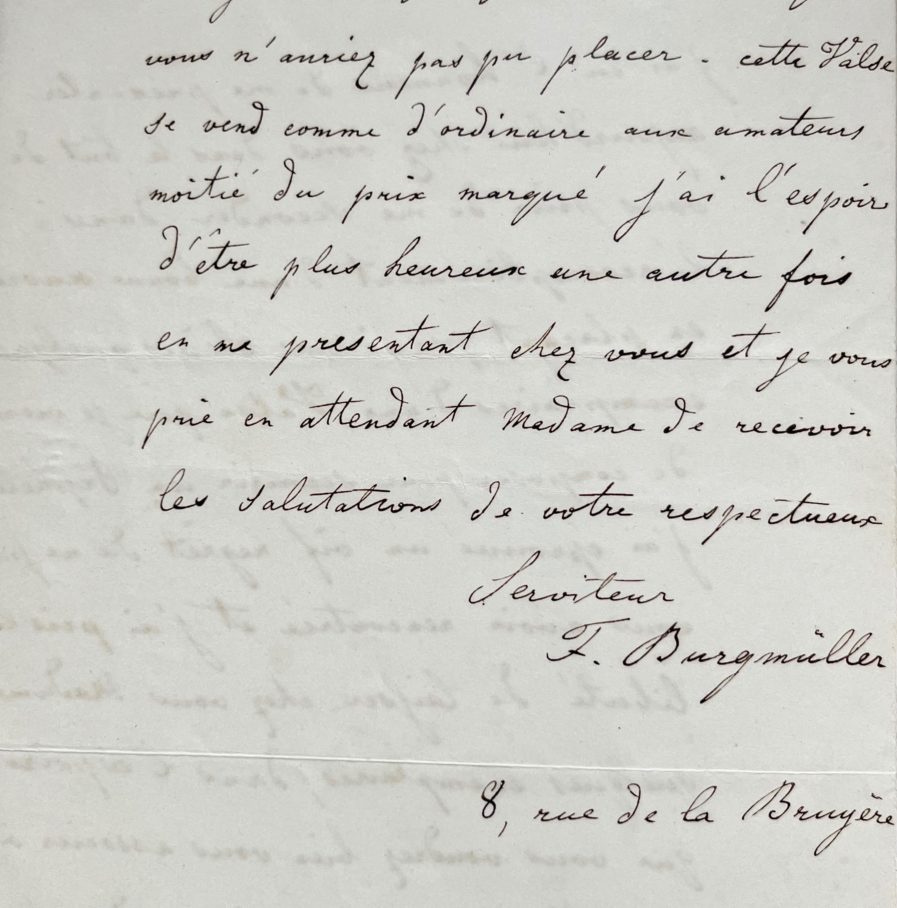 vous n'auriez pas pu placer. cette Valse
se vend comme d'ordinaire aux amateurs
moitié du prix marqué j'ai l'espoir
d'être plus heureux une autre fois
en me presentant chez vous et je vous
prie en attendant Madame de recevoir
les salutations de votre respectueux
Serviteur
F. Burgmüller
8, rue de la Bruyère